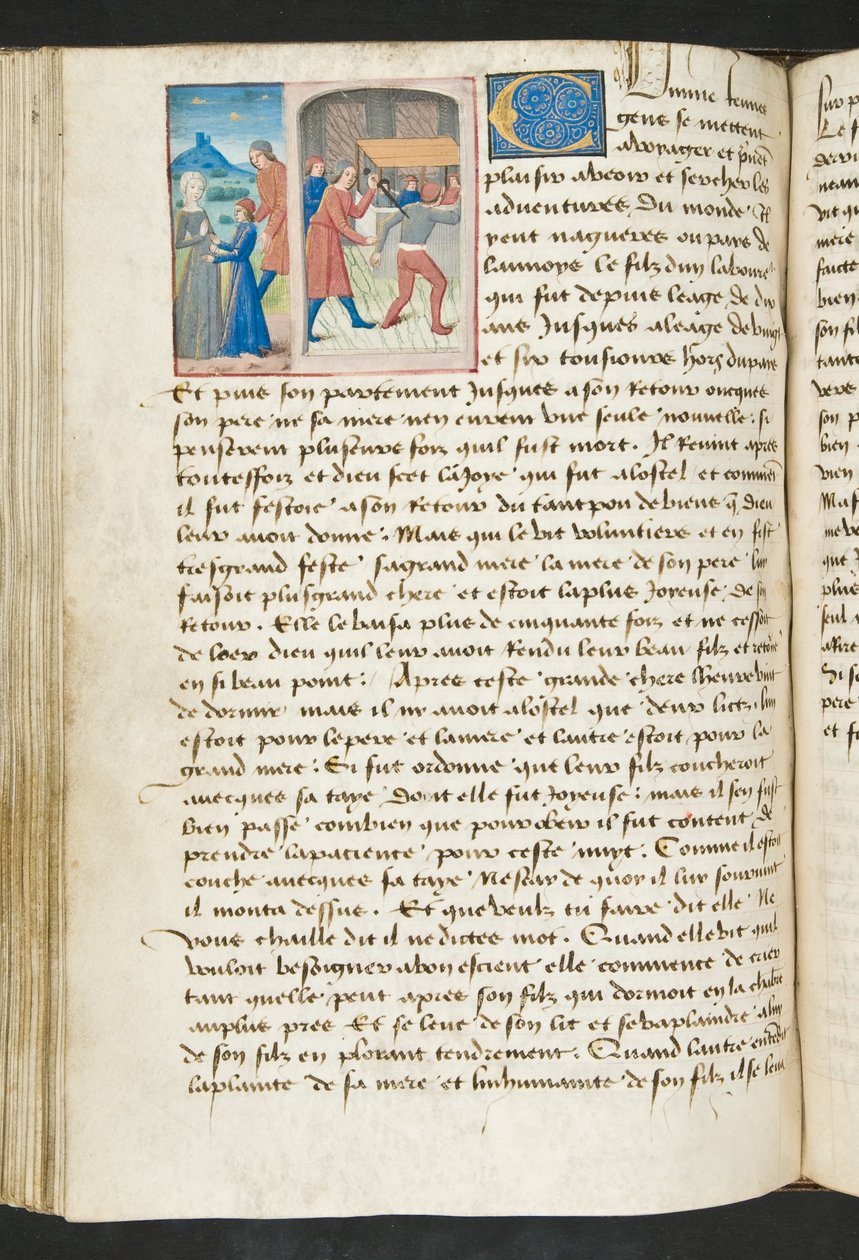 Comme Jeunes
gens se mettent
a voyager et prenent
plaisir a veoir et sercher les
adventures du monde Il
y eut nagueres ou pays de
lannoys le filz dun laboureur
qui fut depuis leage de dix
ans Jusques a leage de vingt
et six tousiours hors du pays
Et puis son partement Jusques a son Retour oncques
son pere ne sa mere nen eurent une seule nouvelle. si
penserent pluseurs foiz quil fust mort. Il Revint apres
toutesfoiz et dieu scet la Joye qui fut a lostel et comment
il fut festoie a son Retour du tant pou de biens que dieu
leur avoit donne. Mais qui le vit voluntiers et en fist
tresgrand feste sa grand mere la mere de son pere luy
faisoit plus grand chere et estoit la plus Joyeuse de son
Retour. Elle le baisa plus de cinquante foiz et ne cessoit
de loer dieu quil leur avoit Rendu leur beau filz et retourne
en si beau point. Apres ceste grande chere lheure vint
de dormir mais il ny avoit a lostel que deux lictz. lun
estoit pour le pere et la mere et lautre estoit pour la
grand mere. Si fut ordonne que leur filz coucheroit
avecques sa taye dont elle fut Joyeuse. mais il sen fust
bien passe combien que pour obeir il fut content de
prendre la pacience pour ceste nuyt. Comme il estoit
couche avecques sa taye Ne scay de quoy il luy souvint
il monta dessus. Et que veulz tu faire dit elle Ne
vous chaille dit il ne dictes mot. Quand elle vit quil
vouloit besoigner a bon escient elle commence de crier
tant quelle peut apres son filz qui dormoit en la chambre
au plus pres Et se leve de son lit et se va plaindre a luy
de son filz en plorant tendrement. Quand lautre entendit
la plainte de sa mere et linhumanite de son filz il se leva